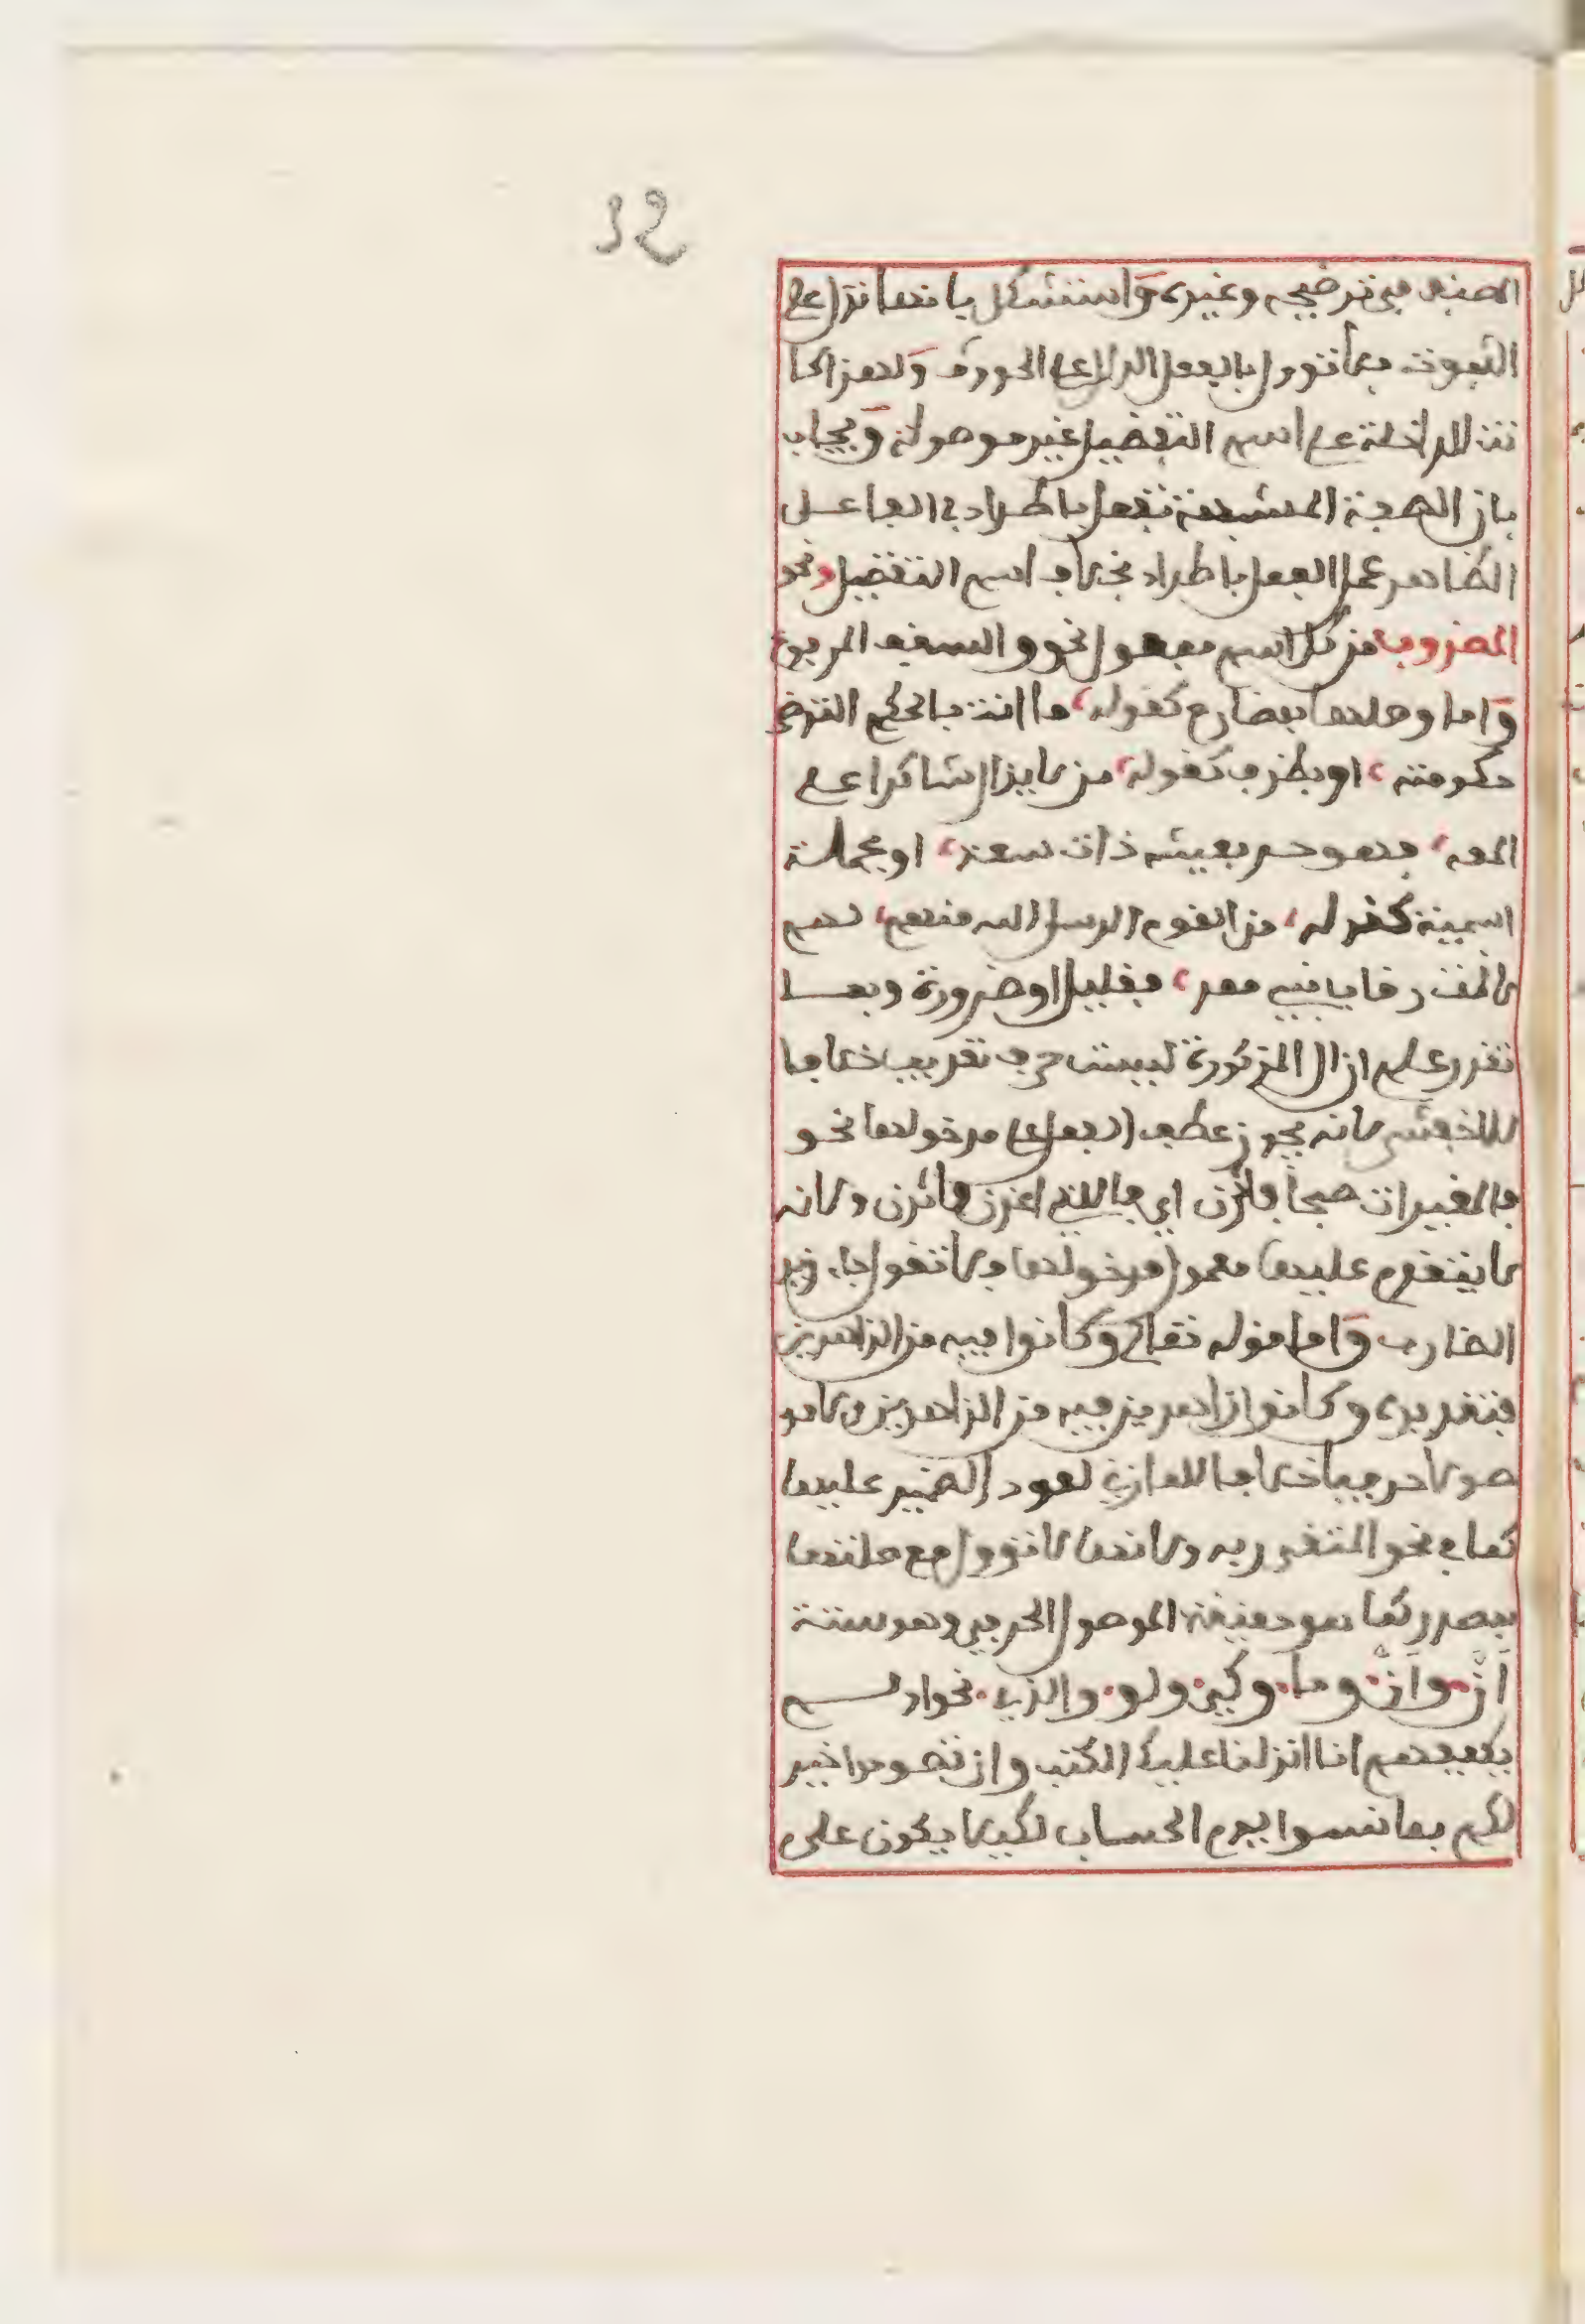 32
المصنف في توضيحه وغيره واستشكل بانها تدل على
الثبوت فلا تؤول بالفعل الدال على الحدوث ولهذا كا
نت الداخلة على اسم التفضيل غير موصولة ويجاب
بان الصفة المشبهة تفعل باطراد في الفاعل
الظاهر عمل الفعل باطراد بخلاف اسم التفضيل ونحو
المضروب من كل اسم مفعول نحو والسقف المرفوع
واما وصلها بمضارع كقوله ما انت بالحكم الترضى
حكومته او بظرف كقوله من لا يزال شاكرا على
المعه فهو حر بعيشة ذات سعة او بجملة
اسمية كقوله من القوم الرسول الله منهم لهم
دانت رقاب بني معد فقليل او ضرورة وبما
تقرر علم ان ال المذكورة ليست حرف تعريف خلافا
للاخفش لانه يجوز عطف الفعل على مدخولها نحو
فالمغيرات صبحا فاثرن اي فاللاتي اغرن فاثرن ولانه
لا يتقدم عليها معمول مدخولها فلا تقول جاء زيد
الضارب واما قوله تعالى وكانوا فيه من الزاهدين
فتقديره وكانوا زاهدين فيه من الزاهدين ولا مو
صولا حرفيا خلافا للمازني لعود الضمير عليها
كما في نحو المتقي ربه ولانها لا تؤول مع صلتها
بمصدر كما هو حقيقة الموصول الحرفي وهو ستة
أن وأنّ وما وكي ولو والذي نحو او لم
يكفهم انا انزلنا عليك الكتب وان تصوموا خير
لكم بما نسوا يوم الحساب لكيلا يكون على